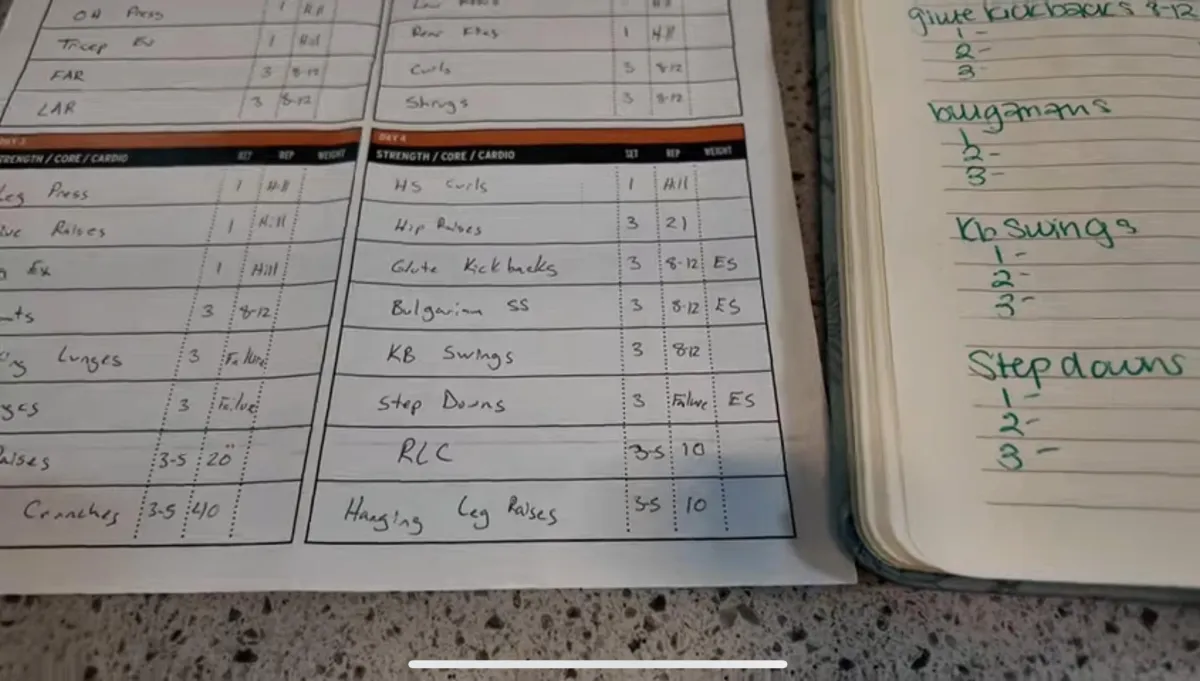 OH Press 1 Hill
Tricep Ex 1 Hill
FAR 3 8-12
LAR 3 8-12
Rear Flies 1 Hill
Curls 3 8-12
Shrugs 3 8-12
DAY 3
TRENGTH / CORE / CARDIO SET REP WEIGHT
Leg Press 1 Hill
Raises 1 Hill
Ex 1 Hill
3 8-12
Lunges 3 Failure
3 Failure
Raises 3-5 20
Crunches 3-5 40
DAY 4
STRENGTH / CORE / CARDIO SET REP WEIGHT
HS Curls 1 Hill
Hip Raises 3 21
Glute Kickbacks 3 8-12 ES
Bulgarian SS 3 8-12 ES
KB Swings 3 8-12
Step Downs 3 Failure ES
RLC 3-5 10
Hanging Leg Raises 3-5 10
glute kickbacks 8-12
1-
2-
3-
1-
2-
3-
Kb Swings
1-
2-
3-
Step downs
1-
2-
3-